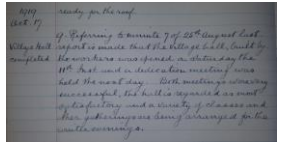 1919
Oct. 17
ready for the roof.
Village Hall
completed
9. Referring to minute 7 of 25th August last
report is made that the village hall, built by
the workers was opened on Saturday the
11th Inst. and a dedication meeting was
held the next day. Both meetings were very
successful, the hall is regarded as most
satisfactory and a variety of classes and
other gatherings are being arranged for the
winter evenings.